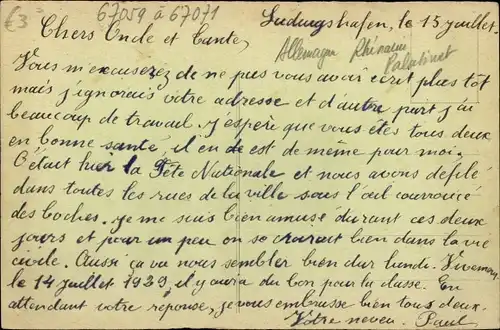 €3
67059 à 67071
Ludwigshafen, le 15 juillet.
Chers Oncle et Tante,
Allemagne Rhénanie
Palatinat
Vous m'excuserez de ne pas vous avoir écrit plus tôt
mais j'ignorais votre adresse et d'autre part j'ai
beaucoup de travail. J'espère que vous êtes tous deux
en bonne santé, il en est de même pour moi.
C'était hier la Fête Nationale et nous avons défilé
dans toutes les rues de la ville sous l'œil courroucé
des boches. Je me suis bien amusé durant ces deux
jours et pour un peu on se croirait bien dans la vie
civile. Aussi ça va nous sembler bien dur lundi. Vivement
le 14 juillet 1929, il y aura du bon pour la classe. En
attendant votre réponse, je vous embrasse bien tous deux.
Votre neveu. Paul.